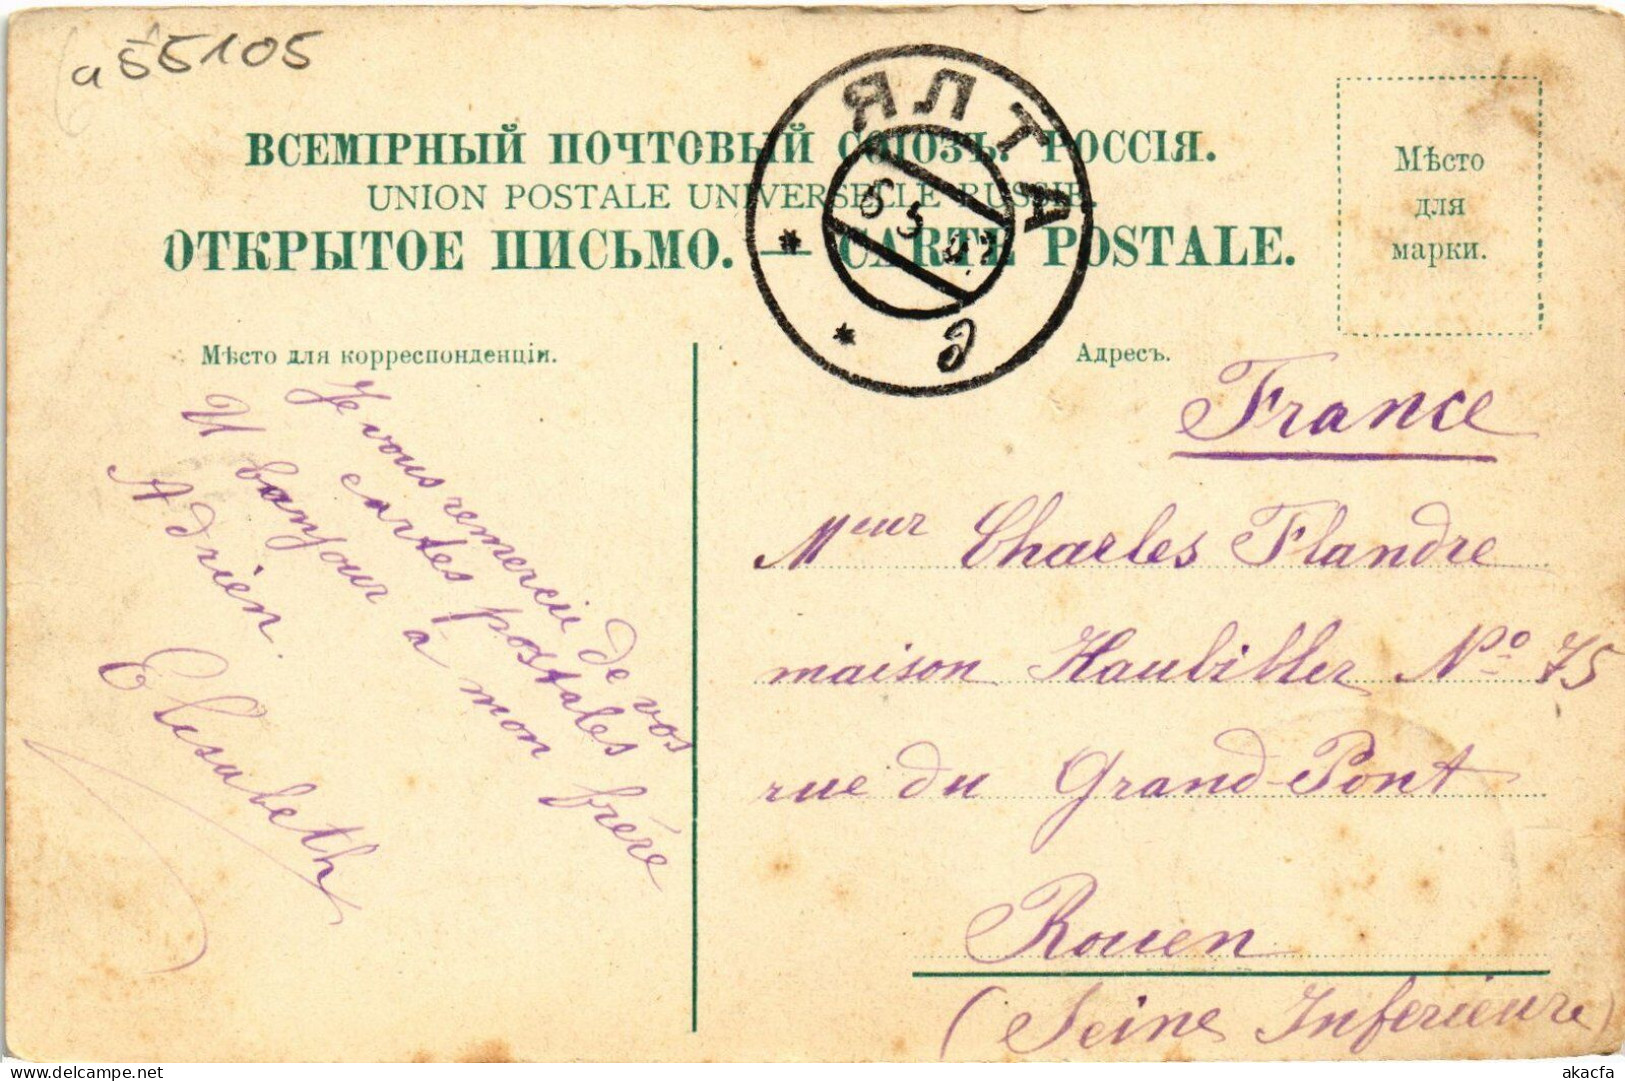 a55105
ВСЕМІРНЫЙ ПОЧТОВЫЙ СОЮЗЪ. РОССІЯ.
UNION POSTALE UNIVERSELLE RUSSIE.
ОТКРЫТОЕ ПИСЬМО. — CARTE POSTALE.
ЯЛТА
6 5
Мѣсто
для
марки.
Мѣсто для корреспонденціи.
Адресъ.
Je vous remercie de vos
cartes postales
bonjour à mon frère
Adrien.
Elisabeth
France
Mʳᵉᵘʳ Charles Flandre
maison Haubitler Nº 75
rue du Grand-Pont
Rouen
(Seine Inferieure)
delcampe.net
akacfa